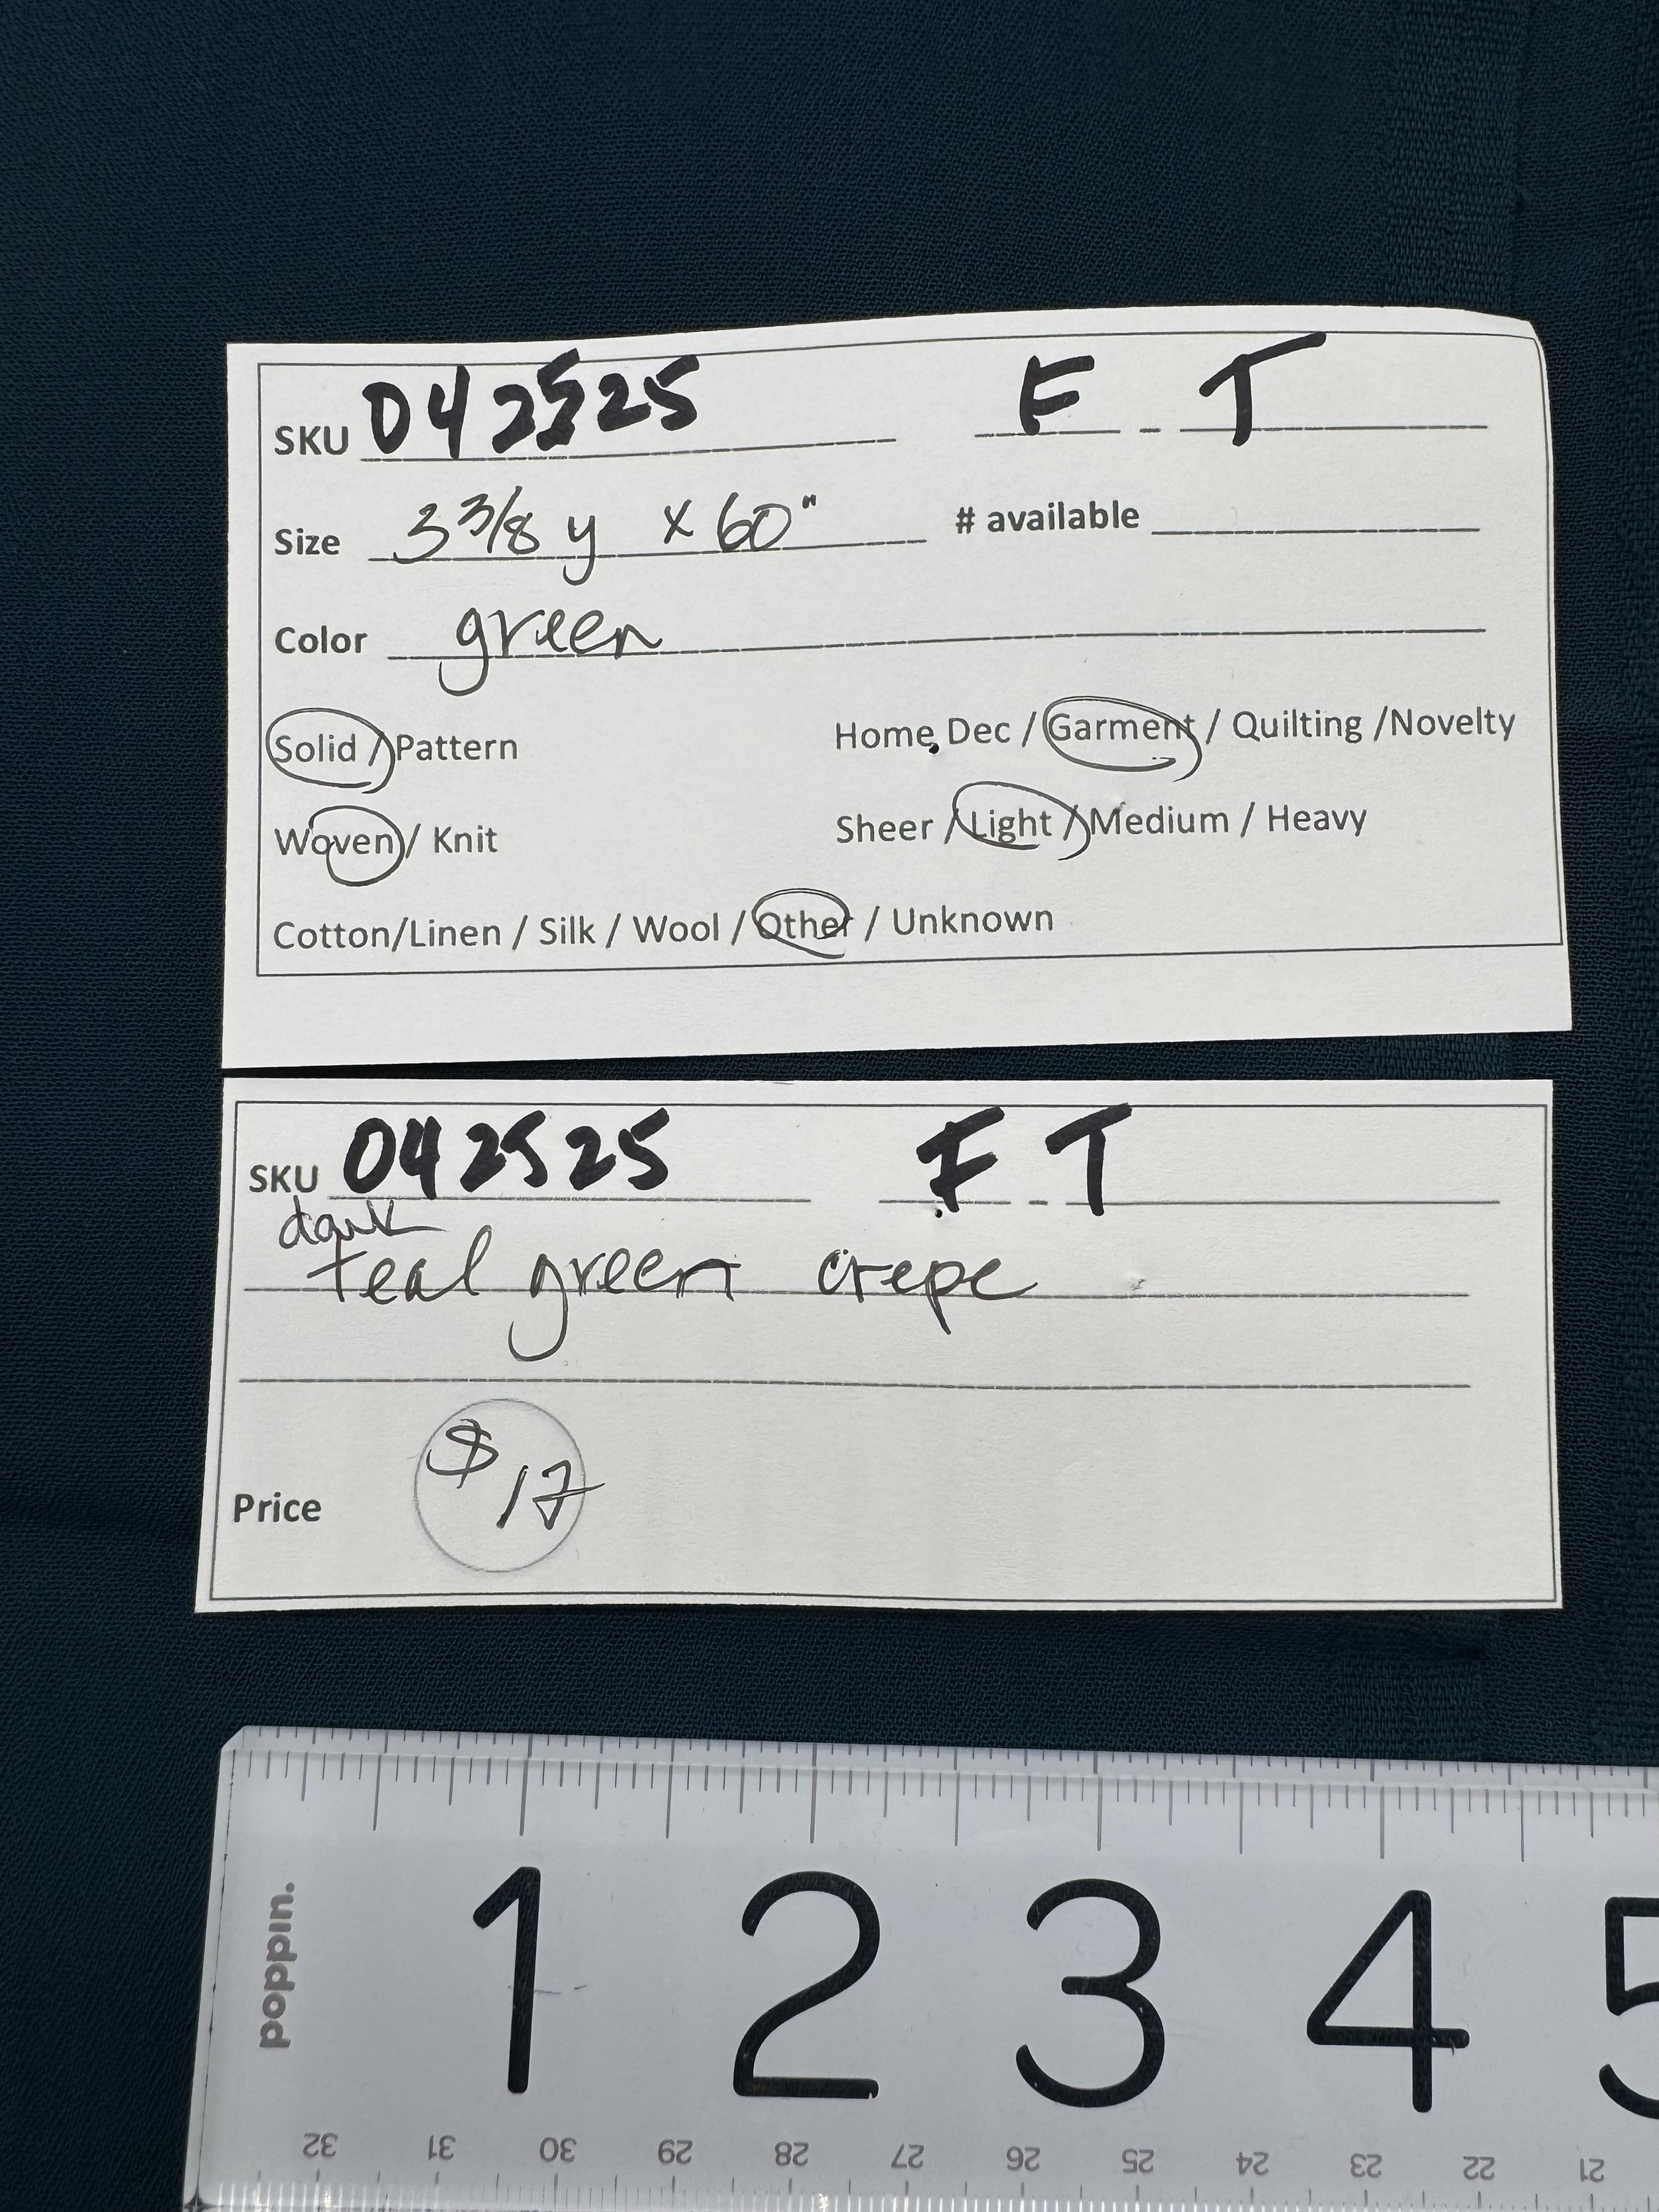 SKU 042525 F - T
Size 3 3/8 y x 60" # available
Color green
Solid / Pattern Home Dec / Garment / Quilting /Novelty
Woven / Knit Sheer / Light / Medium / Heavy
Cotton/Linen / Silk / Wool / Other / Unknown
SKU 042525 F - T
dark
teal green crepe
Price $17
poppin.
1 2 3 4 5
32 31 30 29 28 27 26 25 24 23 22 21